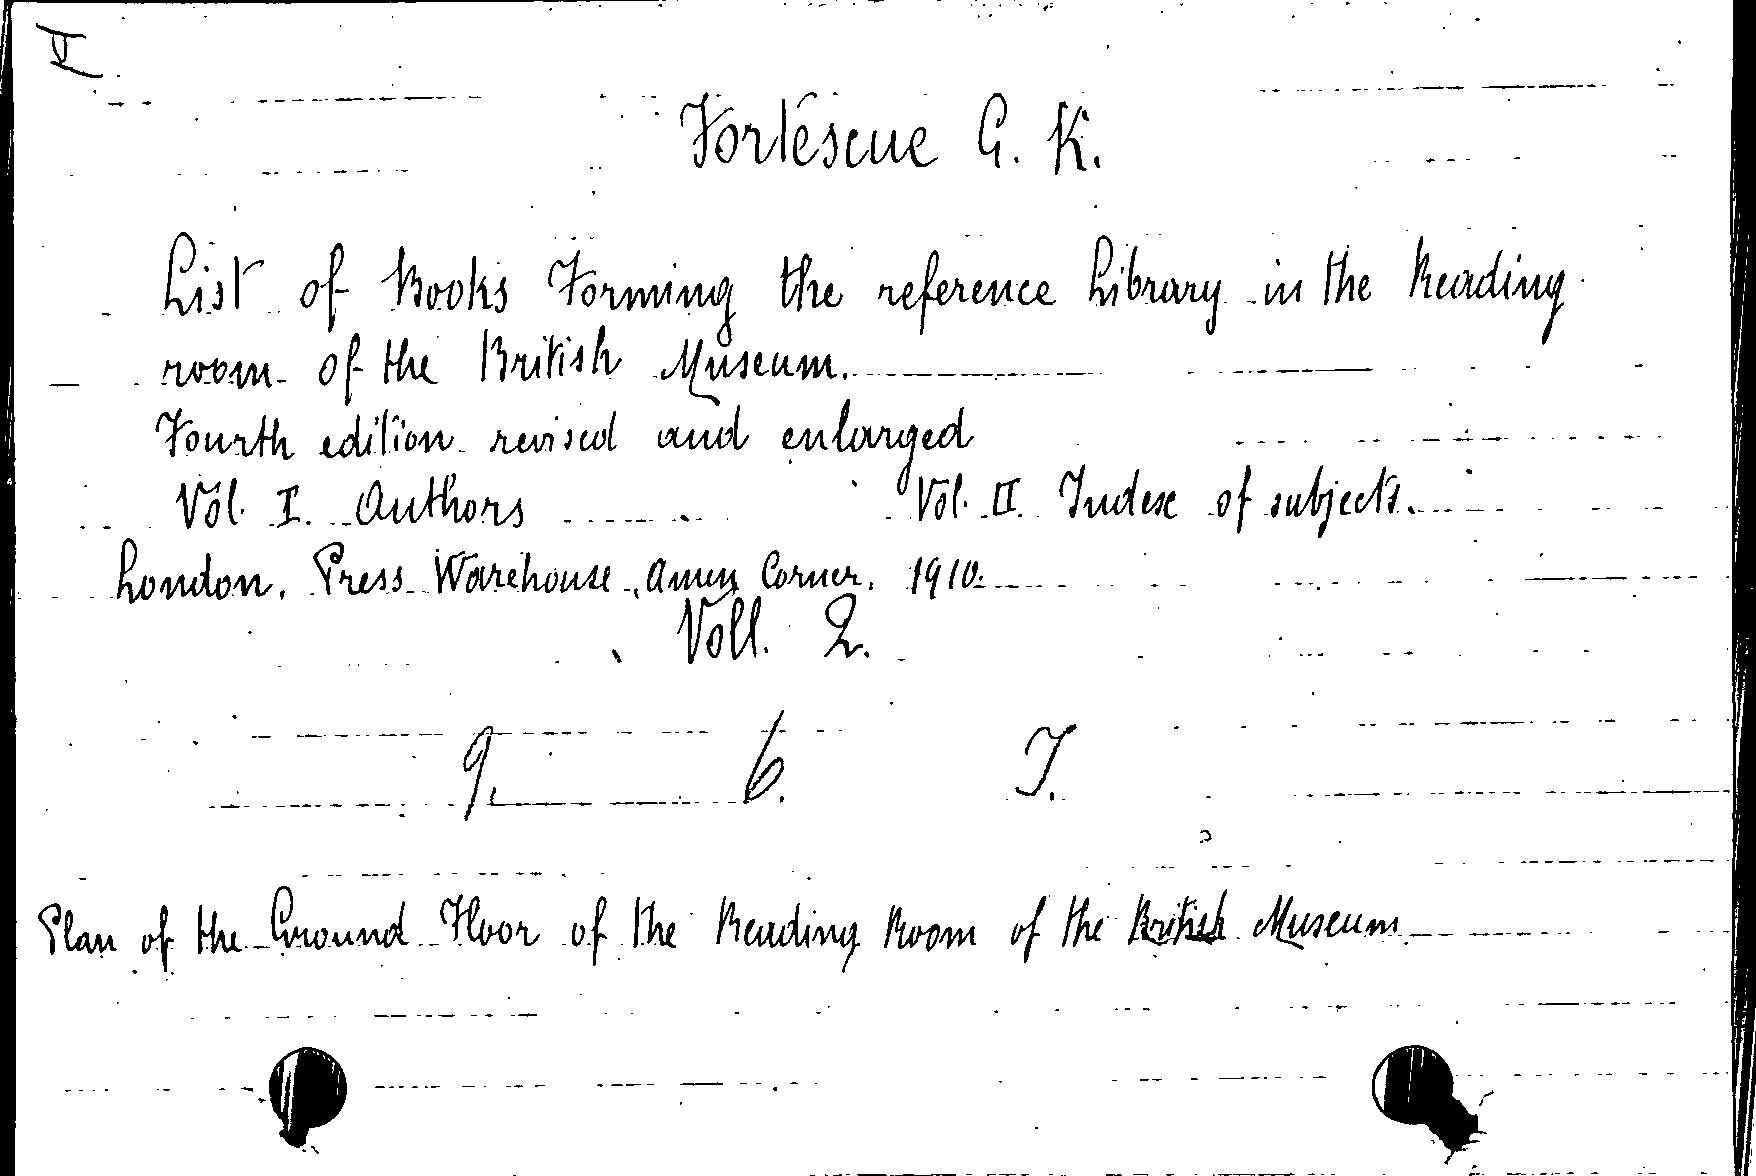 V
Fortescue G. K.
List of Books Forming the reference Library in the Reading
room of the British Museum.
Fourth edition revised and enlarged
Vol. I. Authors Vol. II Index of subjects.
London. Press Warehouse, Amen Corner. 1910.
Voll. 2.
9. 6. I.
Plan of the Ground Floor of the Reading Room of the British Museum.